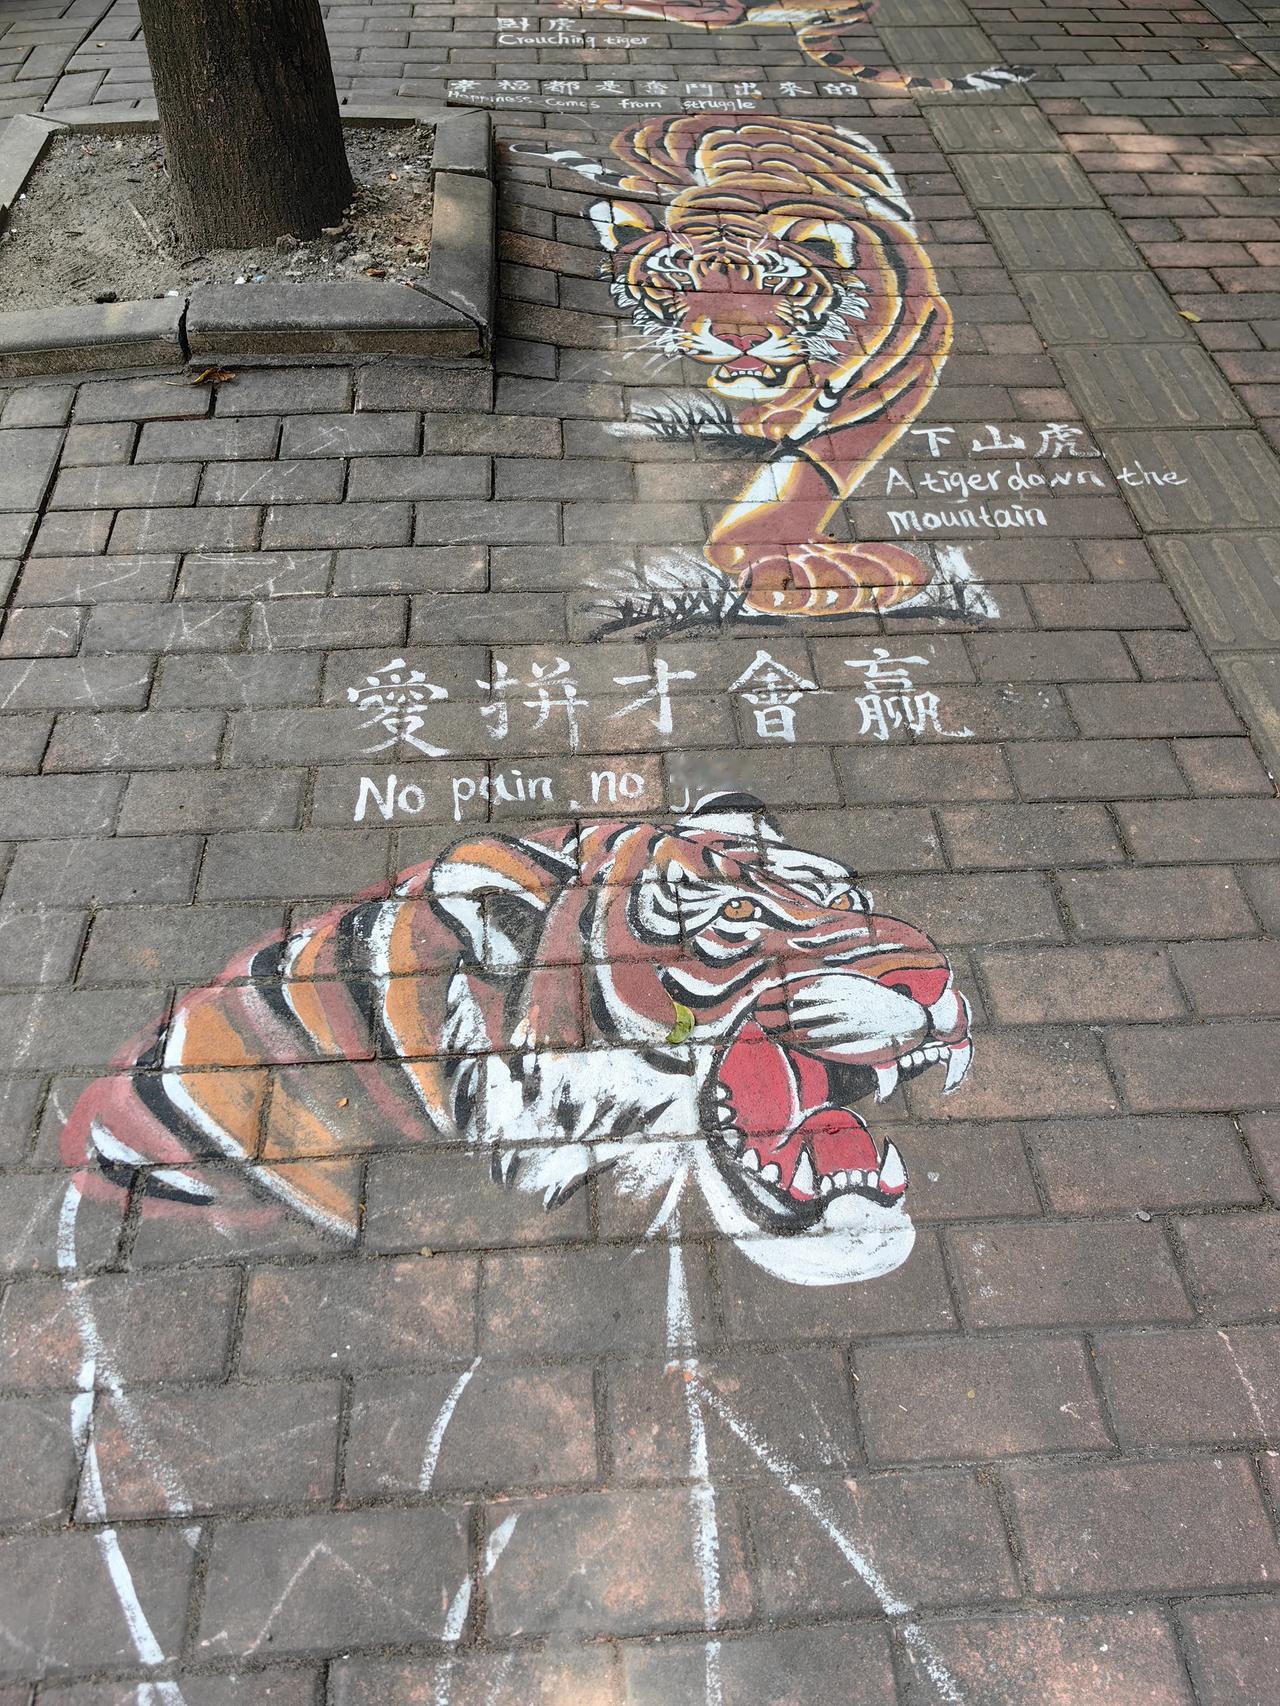 卧虎
Crouching tiger
幸福都是奮鬥出來的
Happiness comes from struggle
下山虎
A tiger down the
mountain
愛拼才會赢
No pain, no